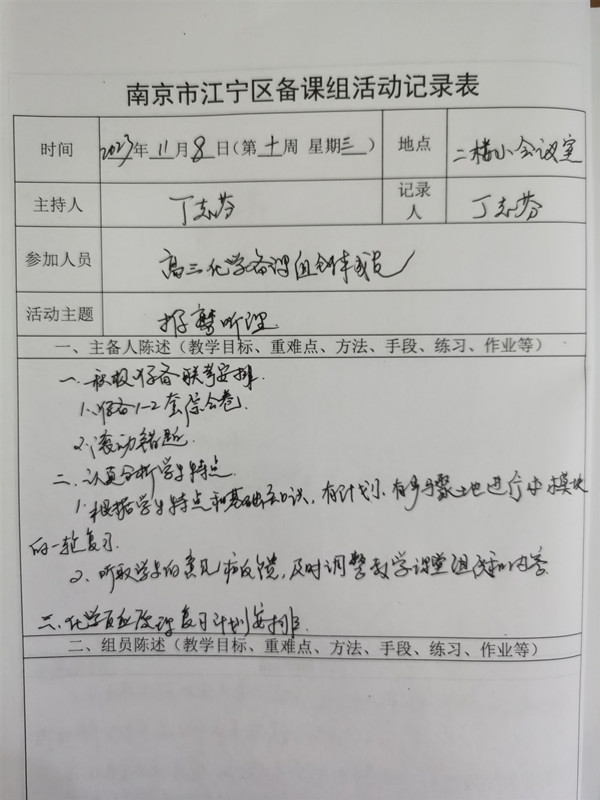 南京市江宁区备课组活动记录表
时间 2023年 11月 8日(第十周 星期三) 地点 二楼小会议室
主持人 丁志芬 记录人 丁志芬
参加人员 高三化学备课组全体成员
活动主题
一、主备人陈述(教学目标、重难点、方法、手段、练习、作业等)
一. 积极准备联考安排.
1. 准备1-2套综合卷
2. 滚动错题.
二、认真分析学生特点.
1. 根据学生特点和基础知识, 有计划、有步骤地进行 模块
的一轮复习.
2. 听取学生的意见和反馈, 及时调整教学课堂 和内容
三. 化学反应原理复习计划安排.
二、组员陈述(教学目标、重难点、方法、手段、练习、作业等)